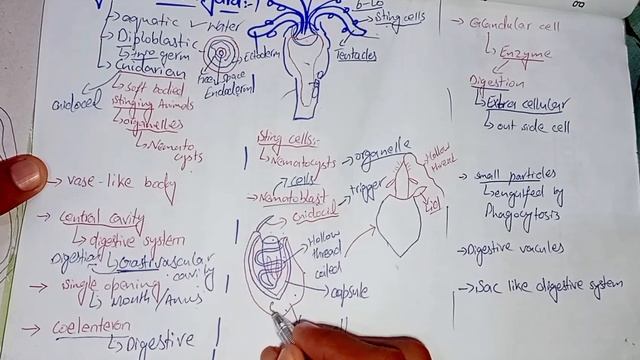 aquatic ✓ water
Diploblastic
two germ
Cnidarian
cnidocil
Soft bodied
stinging Animals
organelles
Nemato
cysts
Ectoderm
Free space
Endoderm
vase-like body
central cavity
digestive system
Digestion
Gastrovascular
cavity
single opening
Mouth/Anus
Coelenteron
Digestive
6-10
Sting cells
Tentacles
Sting cells:-
Nematocysts
organelle
cells
Nematoblast
trigger
cnidocil
Hollow
thread
coiled
capsule
Hollow
thread
Glandular cell
Enzyme
Digestion
Extra cellular
out side cell
small particles
engulfed by
Phagocytosis
Digestive vacules
Sac like digestive system